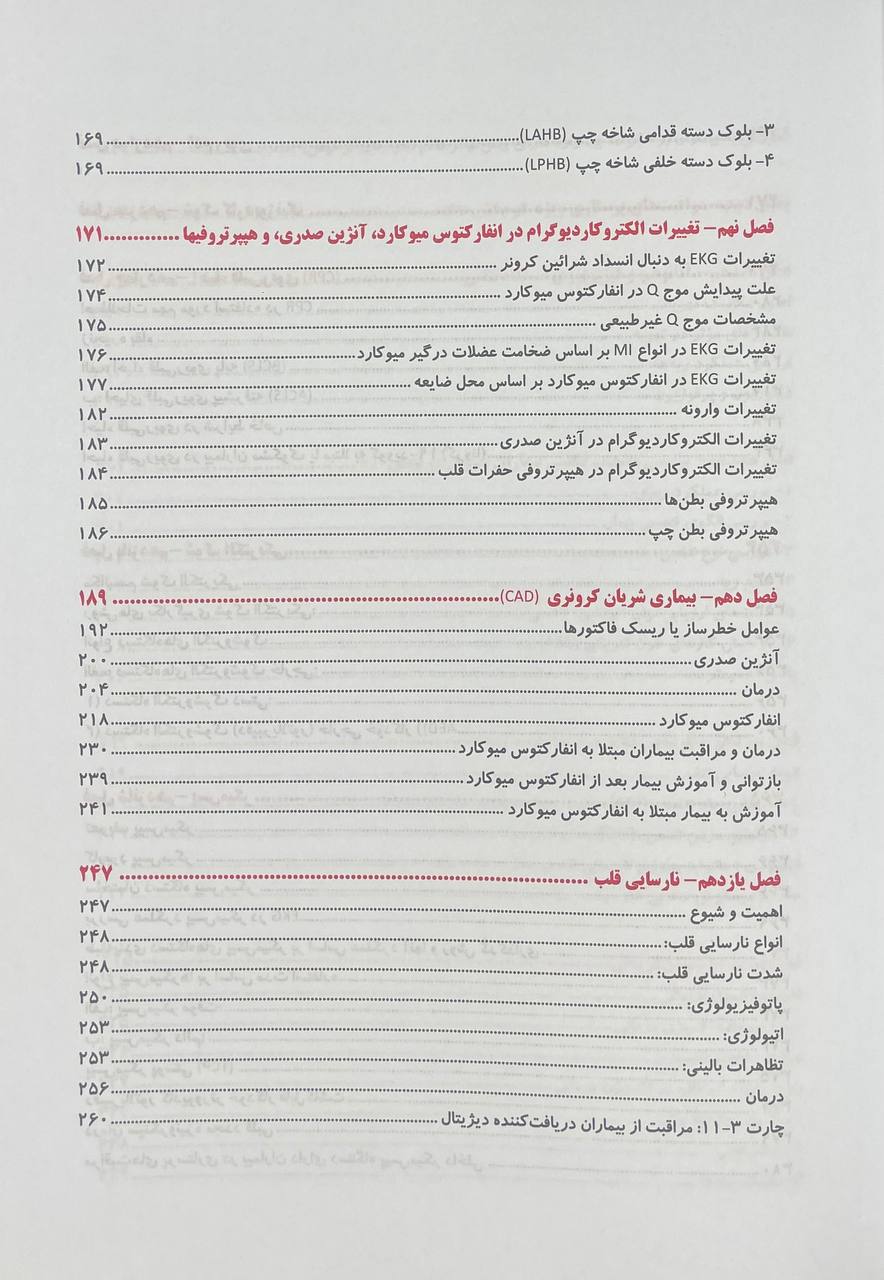 ۳- بلوک دسته قدامی شاخه چپ (LAHB)....................۱۶۹
۴- بلوک دسته خلفی شاخه چپ (LPHB)....................۱۶۹
فصل نهم- تغییرات الکتروکاردیوگرام در انفارکتوس میوکارد، آنژین صدری، و هیپرتروفیها.............۱۷۱
تغییرات EKG به دنبال انسداد شرائین کرونر....................۱۷۲
علت پیدایش موج Q در انفارکتوس میوکارد....................۱۷۴
مشخصات موج Q غیرطبیعی....................۱۷۵
تغییرات EKG در انواع MI بر اساس ضخامت عضلات درگیر میوکارد....................۱۷۶
تغییرات EKG در انفارکتوس میوکارد بر اساس محل ضایعه....................۱۷۷
تغییرات وارونه....................۱۸۲
تغییرات الکتروکاردیوگرام در آنژین صدری....................۱۸۳
تغییرات الکتروکاردیوگرام در هیپرتروفی حفرات قلب....................۱۸۴
هیپرتروفی بطن‌ها....................۱۸۵
هیپرتروفی بطن چپ....................۱۸۶
فصل دهم- بیماری شریان کرونری (CAD)....................۱۸۹
عوامل خطرساز یا ریسک فاکتورها....................۱۹۲
آنژین صدری....................۲۰۰
درمان....................۲۰۴
انفارکتوس میوکارد....................۲۱۸
درمان و مراقبت بیماران مبتلا به انفارکتوس میوکارد....................۲۳۰
بازتوانی و آموزش بیمار بعد از انفارکتوس میوکارد....................۲۳۹
آموزش به بیمار مبتلا به انفارکتوس میوکارد....................۲۴۱
فصل یازدهم- نارسایی قلب....................۲۴۷
اهمیت و شیوع....................۲۴۷
انواع نارسایی قلب:....................۲۴۸
شدت نارسایی قلب:....................۲۴۸
پاتوفیزیولوژی:....................۲۵۰
اتیولوژی:....................۲۵۳
تظاهرات بالینی:....................۲۵۳
درمان....................۲۵۶
چارت ۳-۱۱: مراقبت از بیماران دریافت‌کننده دیژیتال....................۲۶۰